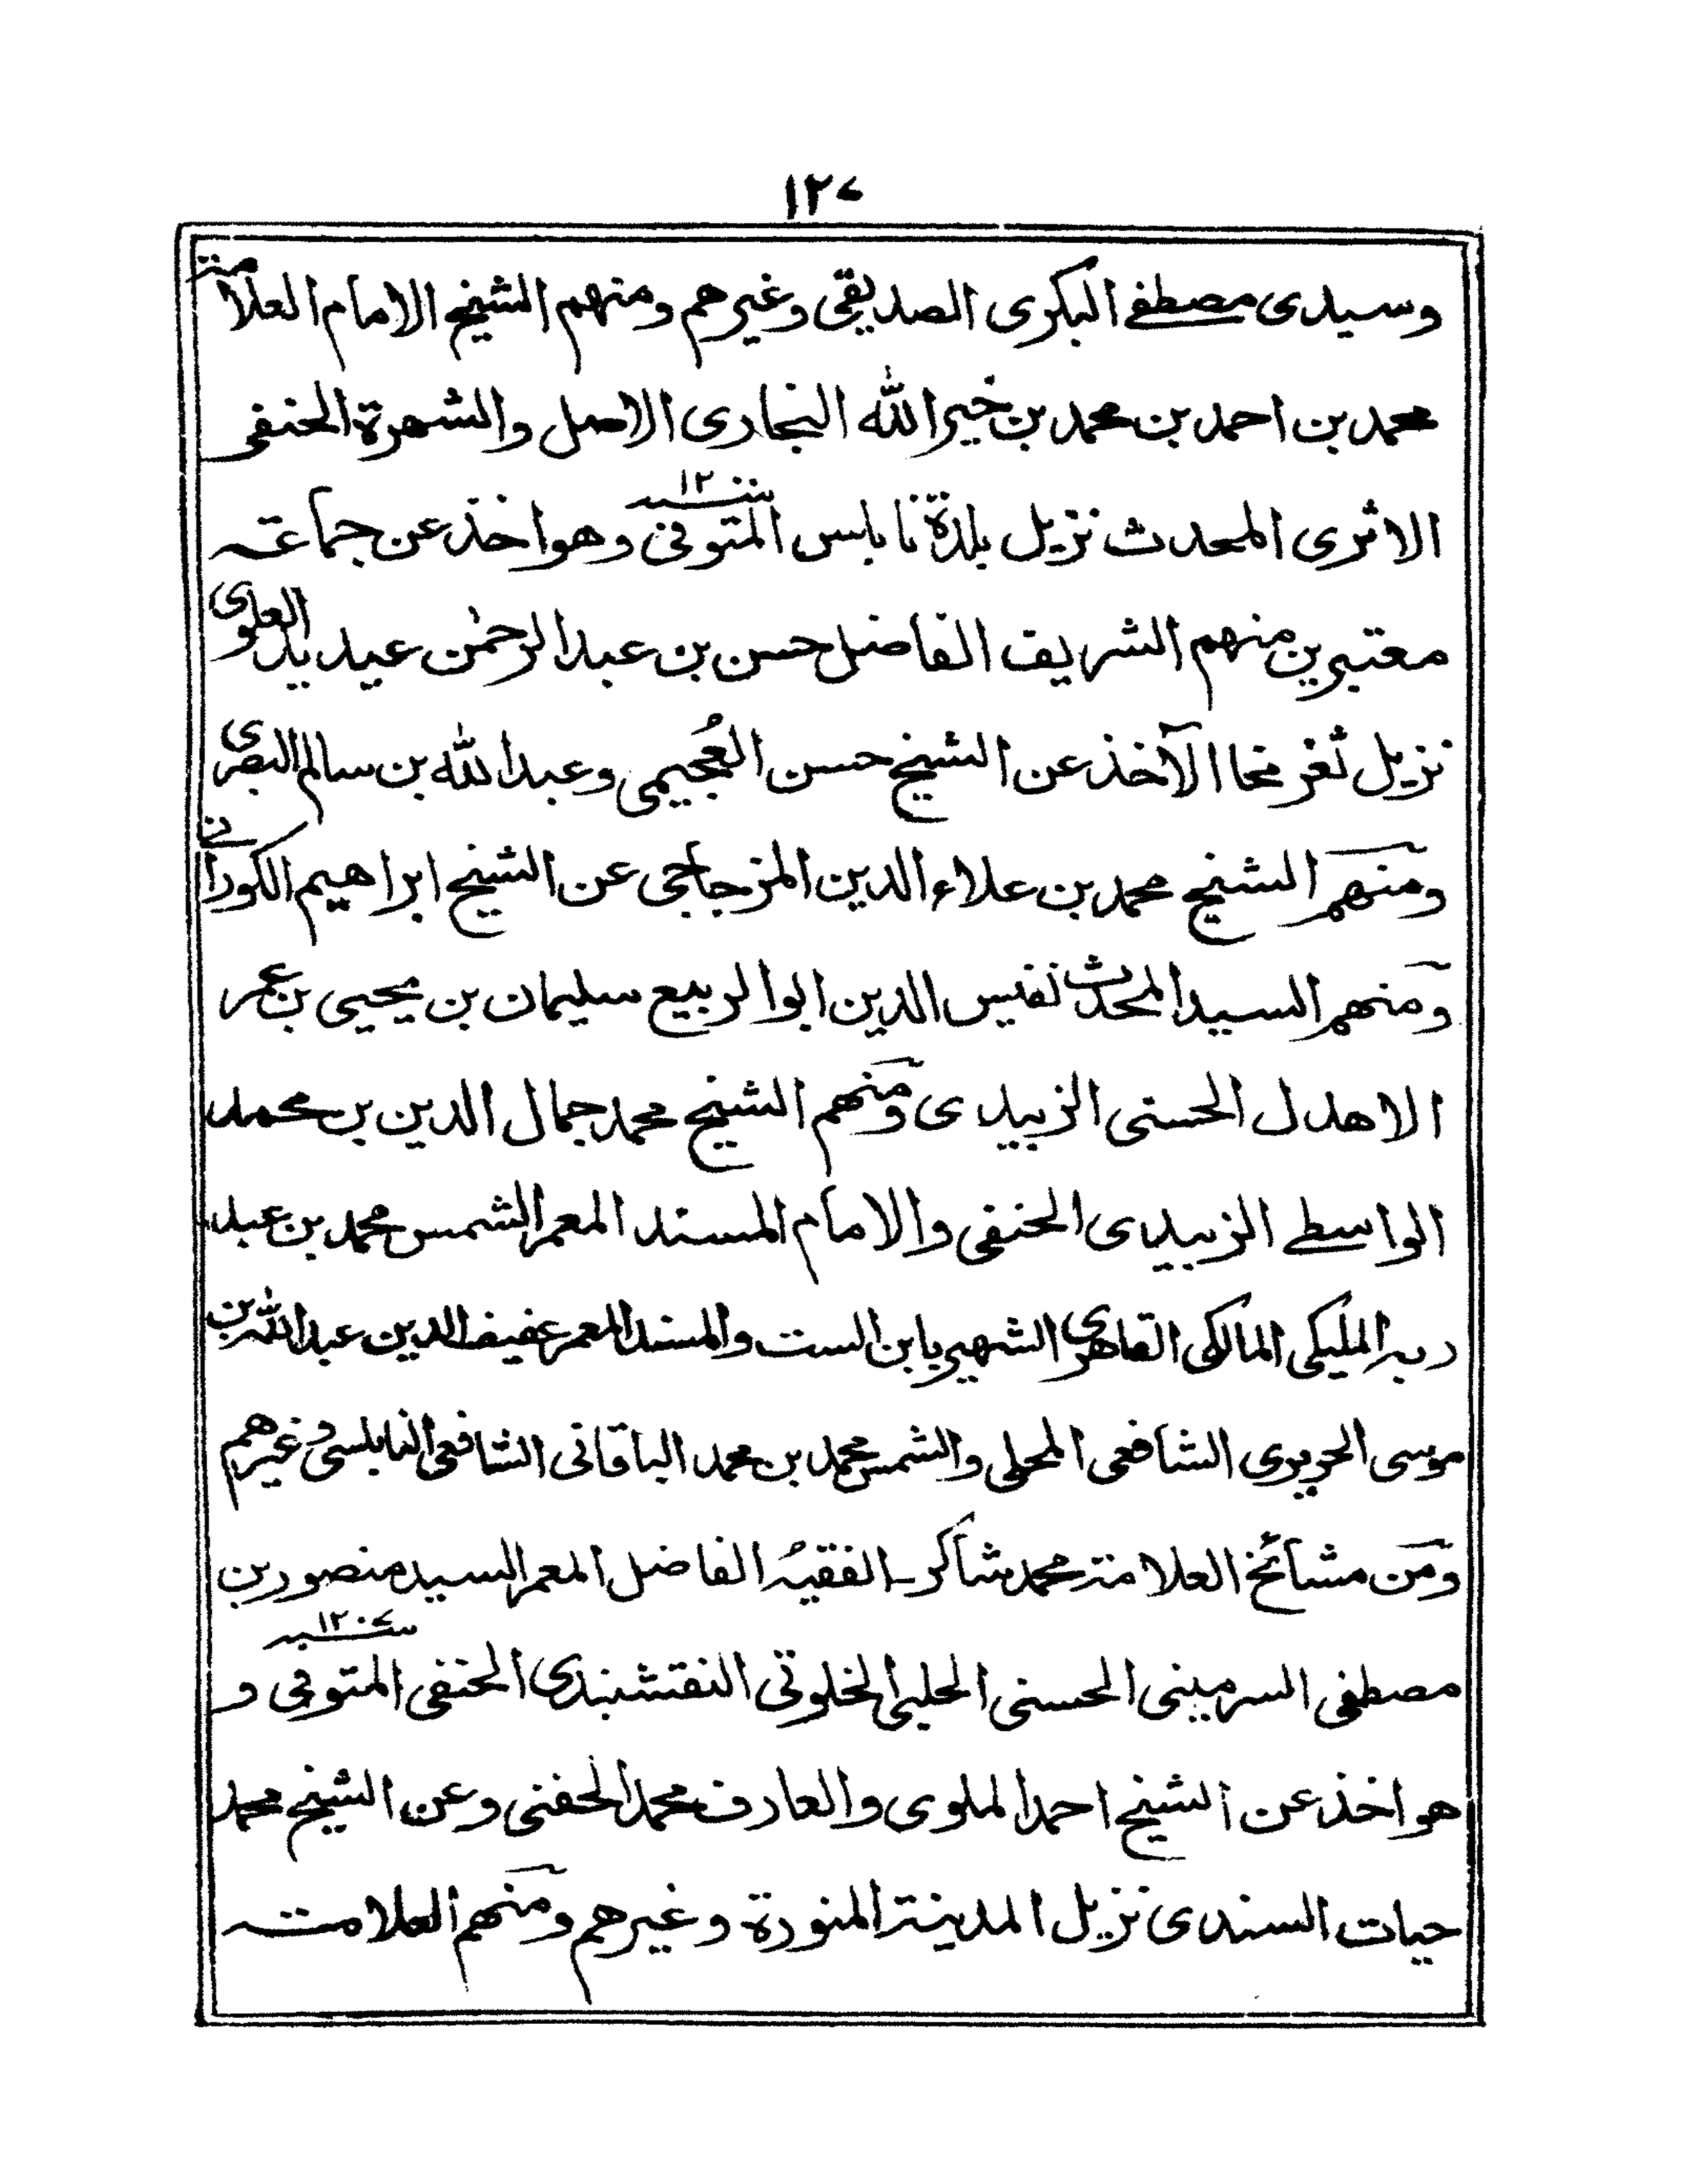 ١٢٧
وسيدى مصطفے البكرى الصديقى وغيرهم ومنهم الشيخ الامام العلامة
محمد بن احمد بن محمد بن خير الله البخارى الاصل والشهرة الحنفى
الاثرى المحدث نزيل بلدة نابلس المتوفى سنة ١٢ وهو اخذ عن جماعة
معتبرين منهم الشريف الفاضل حسن بن عبد الرحمٰن عيديد العلوى
نزيل ثغر مخا الآخذ عن الشيخ حسن العُجيمى وعبد الله بن سالم البصرى
ومنهم الشيخ محمد بن علاء الدين المزجاجى عن الشيخ ابراهيم الكورانے
ومنهم السيد المحدث نفيس الدين ابو الربيع سليمان بن يحيى بن عمر
الاهدل الحسنى الزبيدى ومنهم الشيخ محمد جمال الدين بن محمد
الواسطے الزبيدى الحنفى والامام المسند المعمر الشمس محمد بن عبد
ربه المليكى المالكى القاهرى الشهير بابن الست والمسند المعمر عفيف الدين عبد الله بن
موسى الحريرى الشافعى المحلى والشمس محمد بن محمد الباقانى الشافعى النابلسى وغيرهم
ومن مشائخ العلامة محمد شاكر ـ الفقيهُ الفاضل المعمر السيد منصور بن
مصطفى السرمينى الحسنى الحلبى الخلوتى النقشبندى الحنفى المتوفى سنة ١٢٠٧ و
هو اخذ عن الشيخ احمد الملوى والعارف محمد الحفنى وعن الشيخ محمد
حيات السندى نزيل المدينة المنورة وغيرهم ومنهم العلامة